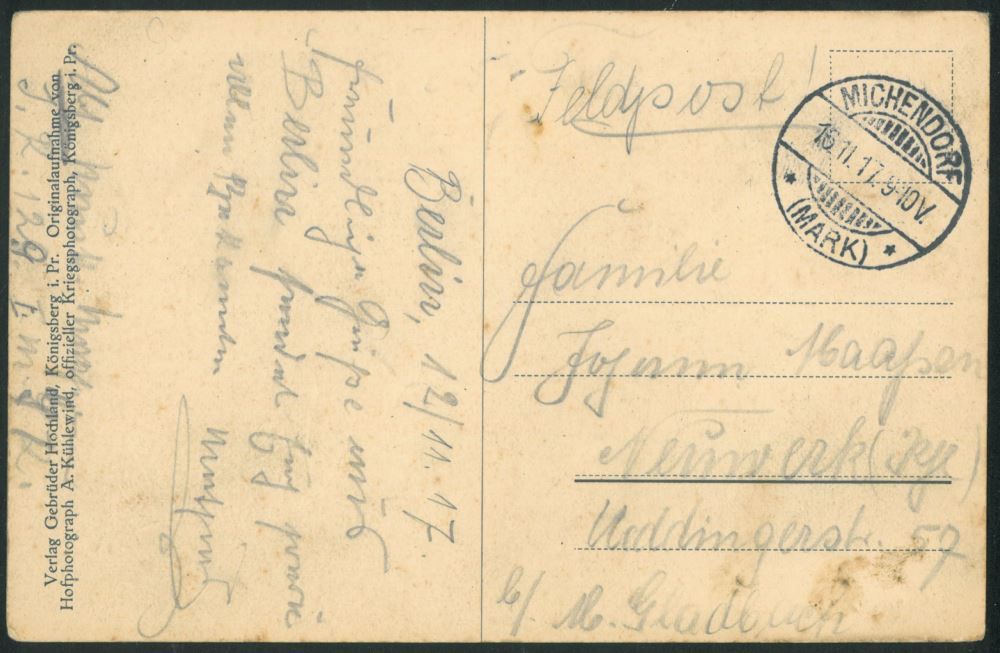 Berlin, 12/11. 17.
freundliche Grüße aus
Berlin sendet Euch sowie
allen Bekannten
Verlag Gebrüder Hochland, Königsberg i. Pr. Originalaufnahme von
Hofphotograph A. Kühlewind, offizieller Kriegsphotograph, Königsberg i. Pr.
Feldpost!
MICHENDORF
16.11.17. 9-10V.
* (MARK) *
Familie
Johann Maaßen
Neuwerk
Uddingerstr. 57
b/ M. Gladbach